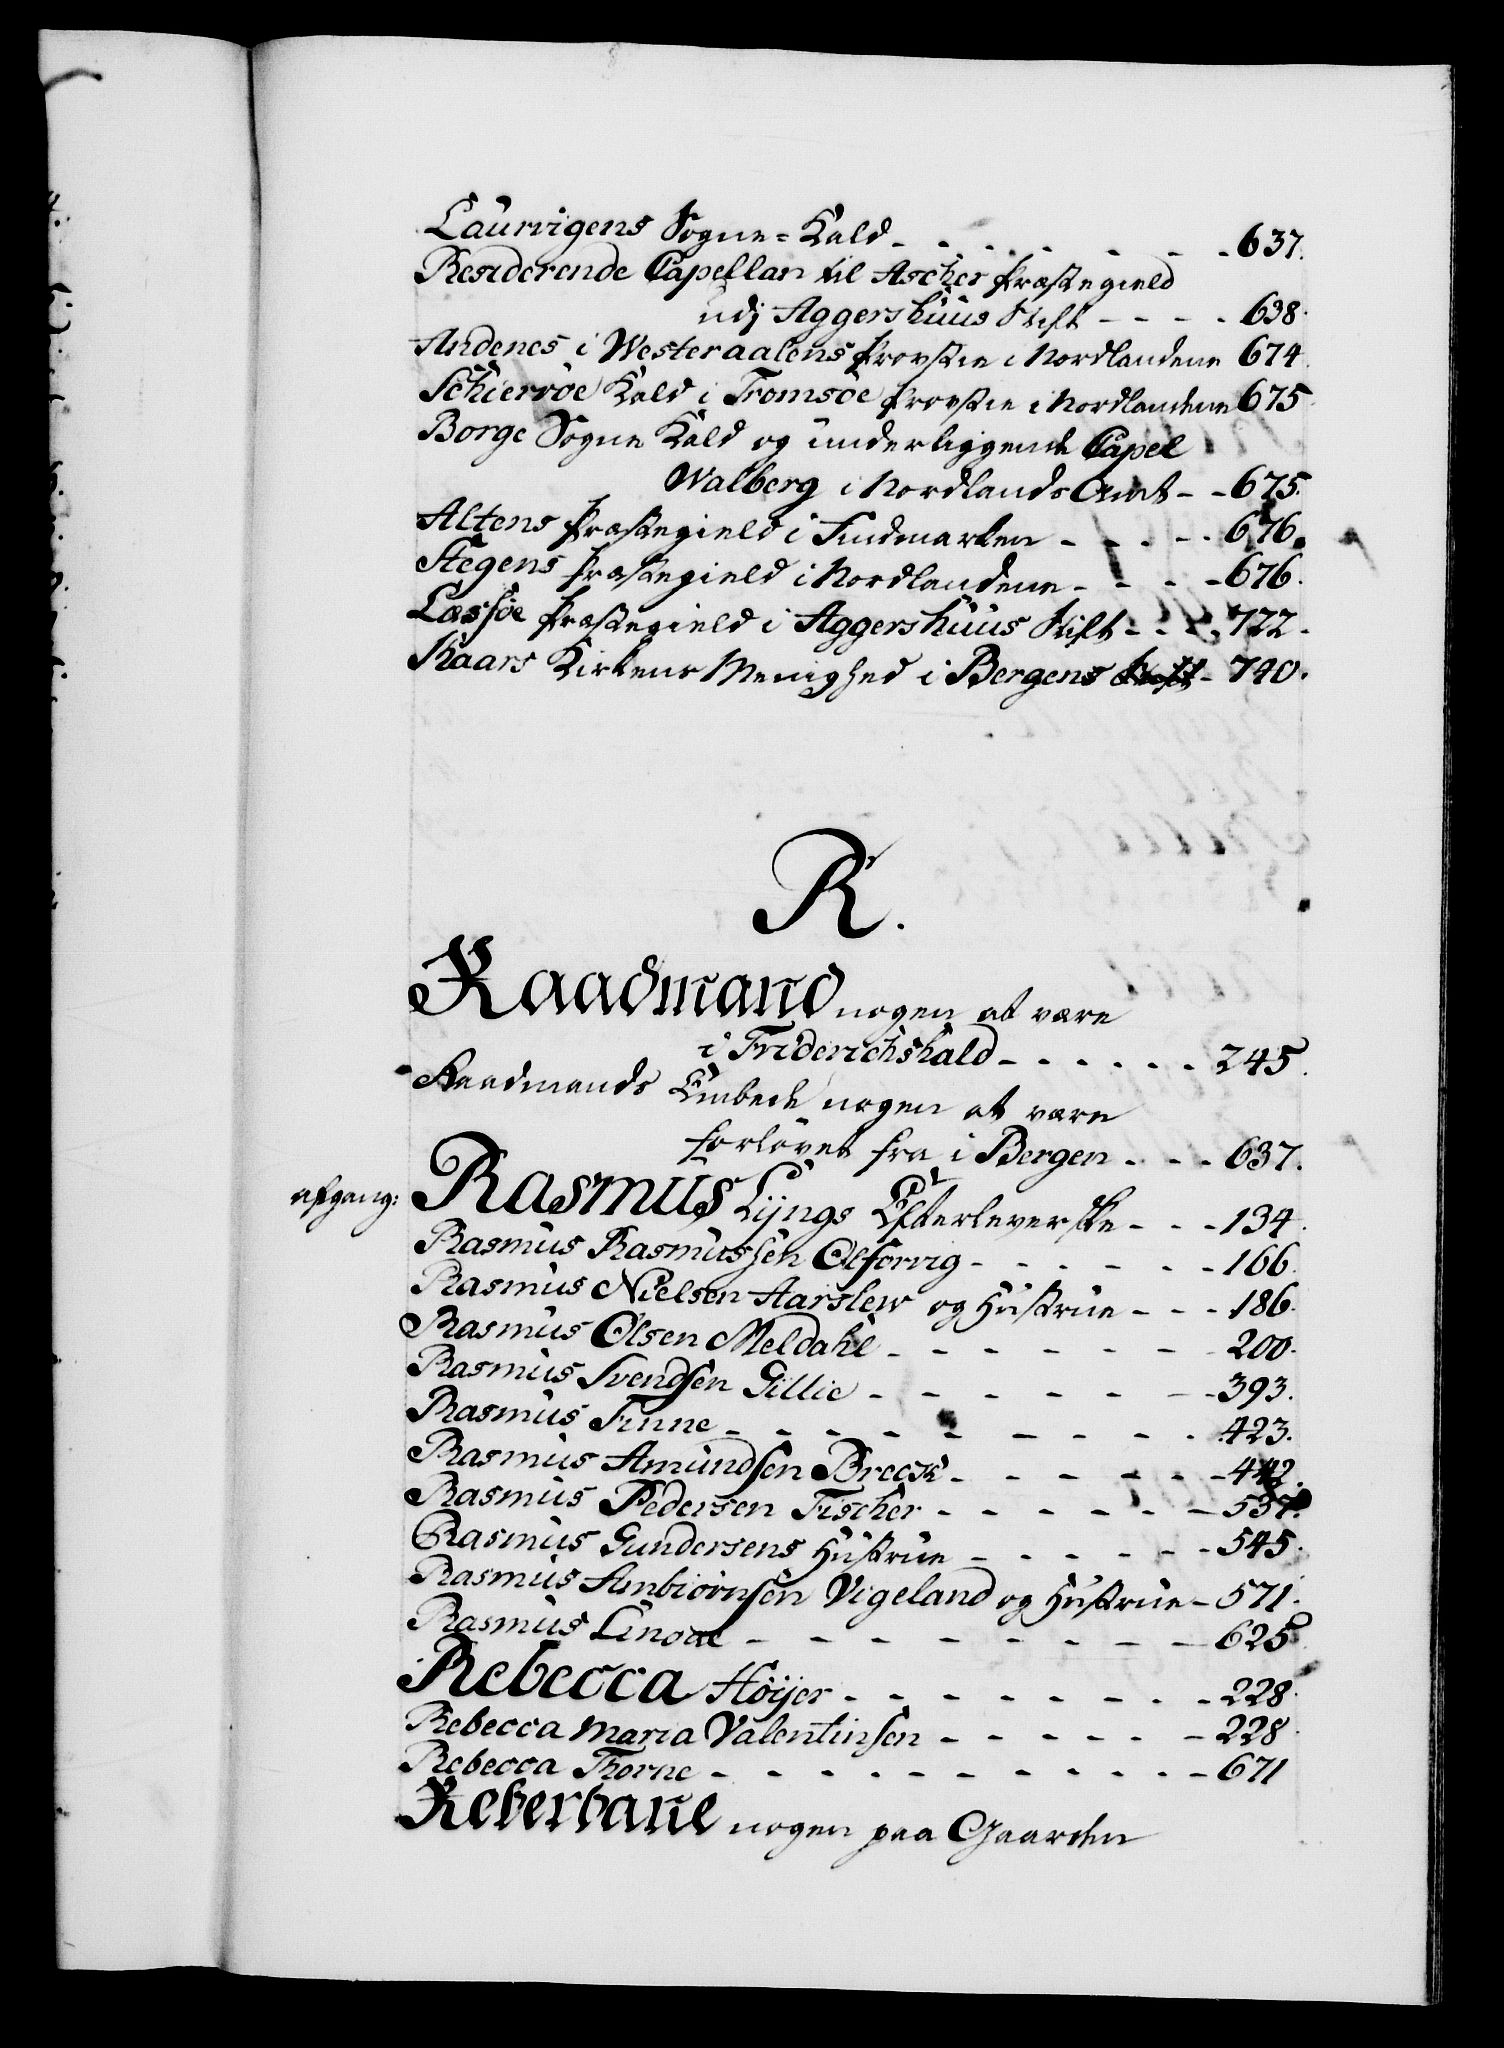 Laurvigens Sogne=Kald - - - - - - - 637.
Residerende Capellan til Ascher Præstegield
udj Aggershuus Stift - - - - 638.
Andenes i Westeraalens Provstie i Nordlandene 674
Schiervøe Kald i Tromsøe Provstie i Nordlandene 675
Borge Sogne Kald og underliggende Capel
Walberg i Nordlands Amt - - 675.
Altens Præstegield i Findmarken - - - - - 676.
Stegens Præstegield i Nordlandene - - - - 676.
Læssøe Præstegield i Aggershuus Stift - - - 722.
Skaars Kirkens Menighed i Bergens Stift - 740.
R.
Raadmand nogen at være
i Friderichshald - - - - - - 245.
Raadmands Embede nogen at være
forlovet fra i Bergen - - - 637.
afgang: Rasmus Lyngs Efterleverske - - - 134.
Rasmus Rasmussen Olforvig - - - - - - 166.
Rasmus Nielsen Aarslew og Hustrue - - - 186.
Rasmus Olsen Meldahl - - - - - - - 200.
Rasmus Svendsen Gillie - - - - - - - 393.
Rasmus Finne - - - - - - - - - - 423.
Rasmus Amundsen Breck - - - - - - 442.
Rasmus Pedersen Fischer - - - - - - 537.
Rasmus Gundersens Hustrue - - - - - - 545.
Rasmus Ambiørnsen Vigeland og Hustrue - 571.
Rasmus - - - - - - - - - - 625
Rebecca Høyer - - - - - - - - 228.
Rebecca Maria Valentinsen - - - - - - 228.
Rebecca Thorne - - - - - - - - - - - 671
Reberbane nogen paa Gaarden